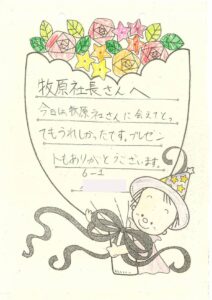 牧原社長さんへ
今日は牧原社さんに会えてとっ
てもうれしかったです。プレゼン
トもありがとうございます。
6-1